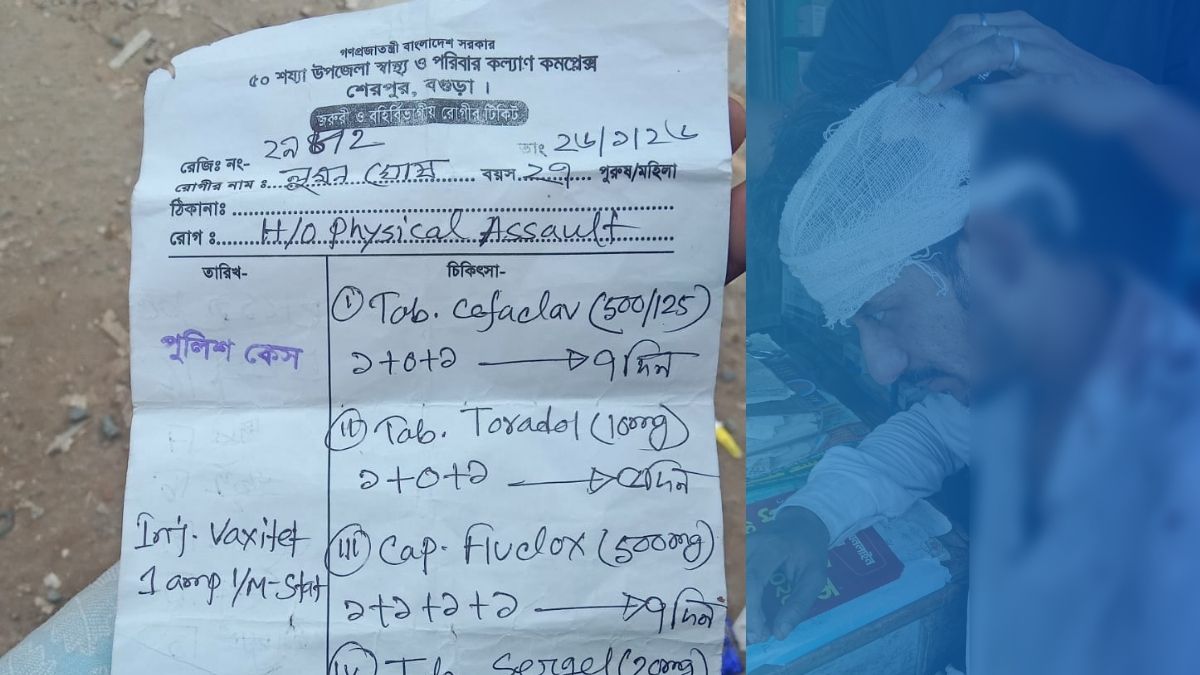 গণপ্রজাতন্ত্রী বাংলাদেশ সরকার
৫০ শয্যা উপজেলা স্বাস্থ্য ও পরিবার কল্যাণ কমপ্লেক্স
শেরপুর, বগুড়া ।
জরুরী ও বহির্বিভাগীয় রোগীর টিকিট
রেজিঃ নং-
তাং ২৬/১/২৬
রোগীর নাম ঃ ঘোষ বয়স ২৭ পুরুষ/মহিলা
ঠিকানাঃ
রোগ ঃ H/O Physical Assault
তারিখ- চিকিৎসা-
পুলিশ কেস
(i) Tab. Cefaclav (500/125)
১+০+১ → ৭ দিন
(ii) Tab. Toradol (10mg)
১+০+১ → দিন
Inj. Vaxitet
1 amp I/M-Stat
(iii) Cap. Fluclox (500mg)
১+১+১+১ → ৭ দিন
(iv) Sergel (20mg)